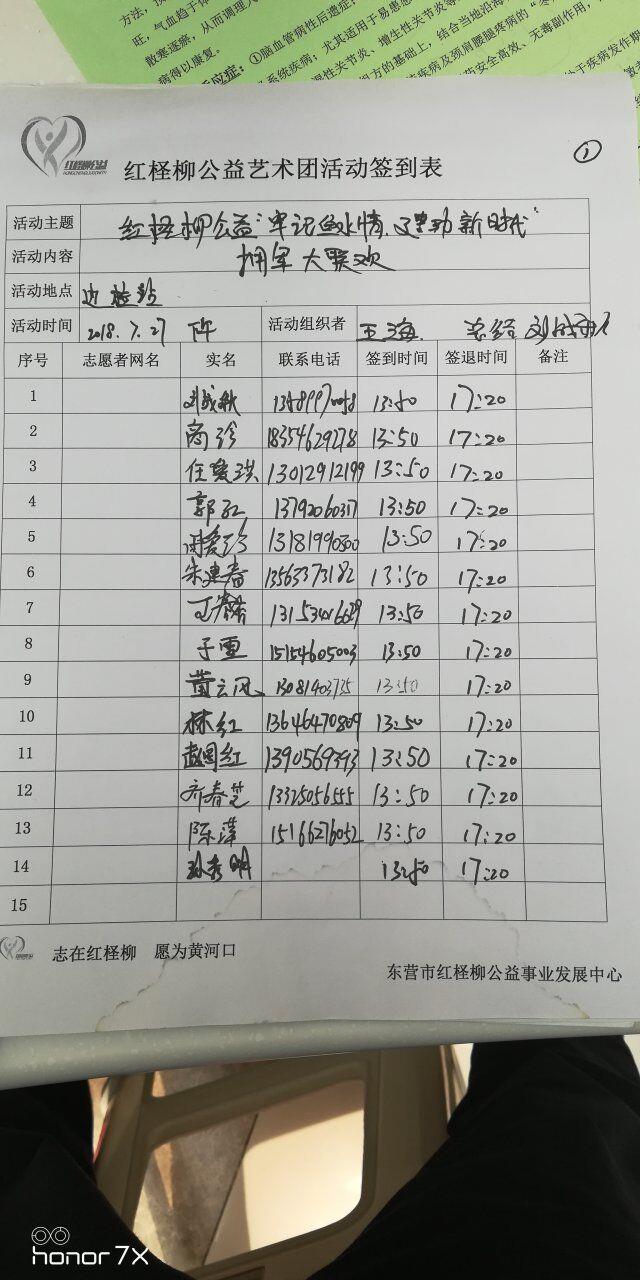 方法，
旺，气血趋于体
散寒逐瘀，从而调理人
病得以康复。
应症：①脑血管病性后遗症；
系统疾病；尤其适用于易患感
性关节炎、增生性关节炎等
方的基础上，结合当地沿海
疾病及颈肩腰腿疾病的“冬
药安全高效、无毒副作用，
于疾病发作期
红柽柳公益
①
红柽柳公益艺术团活动签到表
活动主题 红柽柳公益“牢记鱼水情 新时代”
活动内容 拥军大联欢
活动地点 边检站
活动时间 2018.7.27 下午 活动组织者 王海
序号 志愿者网名 实名 联系电话 签到时间 签退时间 备注
1 刘成秋 13:50 17:20
2 商珍 18354629278 13:50 17:20
3 任爱琪 13012912199 13:50 17:20
4 郭红 13792060317 13:50 17:20
5 周爱珍 13181990300 13:50 17:20
6 朱建春 13563373182 13:50 17:20
7 13:50 17:20
8 于重 15154605003 13:50 17:20
9 黄云凤 13081403735 13:50 17:20
10 林红 13646470809 13:50 17:20
11 赵国红 1390569393 13:50 17:20
12 齐春芝 13325056555 13:50 17:20
13 陈萍 15166276052 13:50 17:20
14 孙秀明 13:50 17:20
15
志在红柽柳 愿为黄河口
东营市红柽柳公益事业发展中心
honor 7X